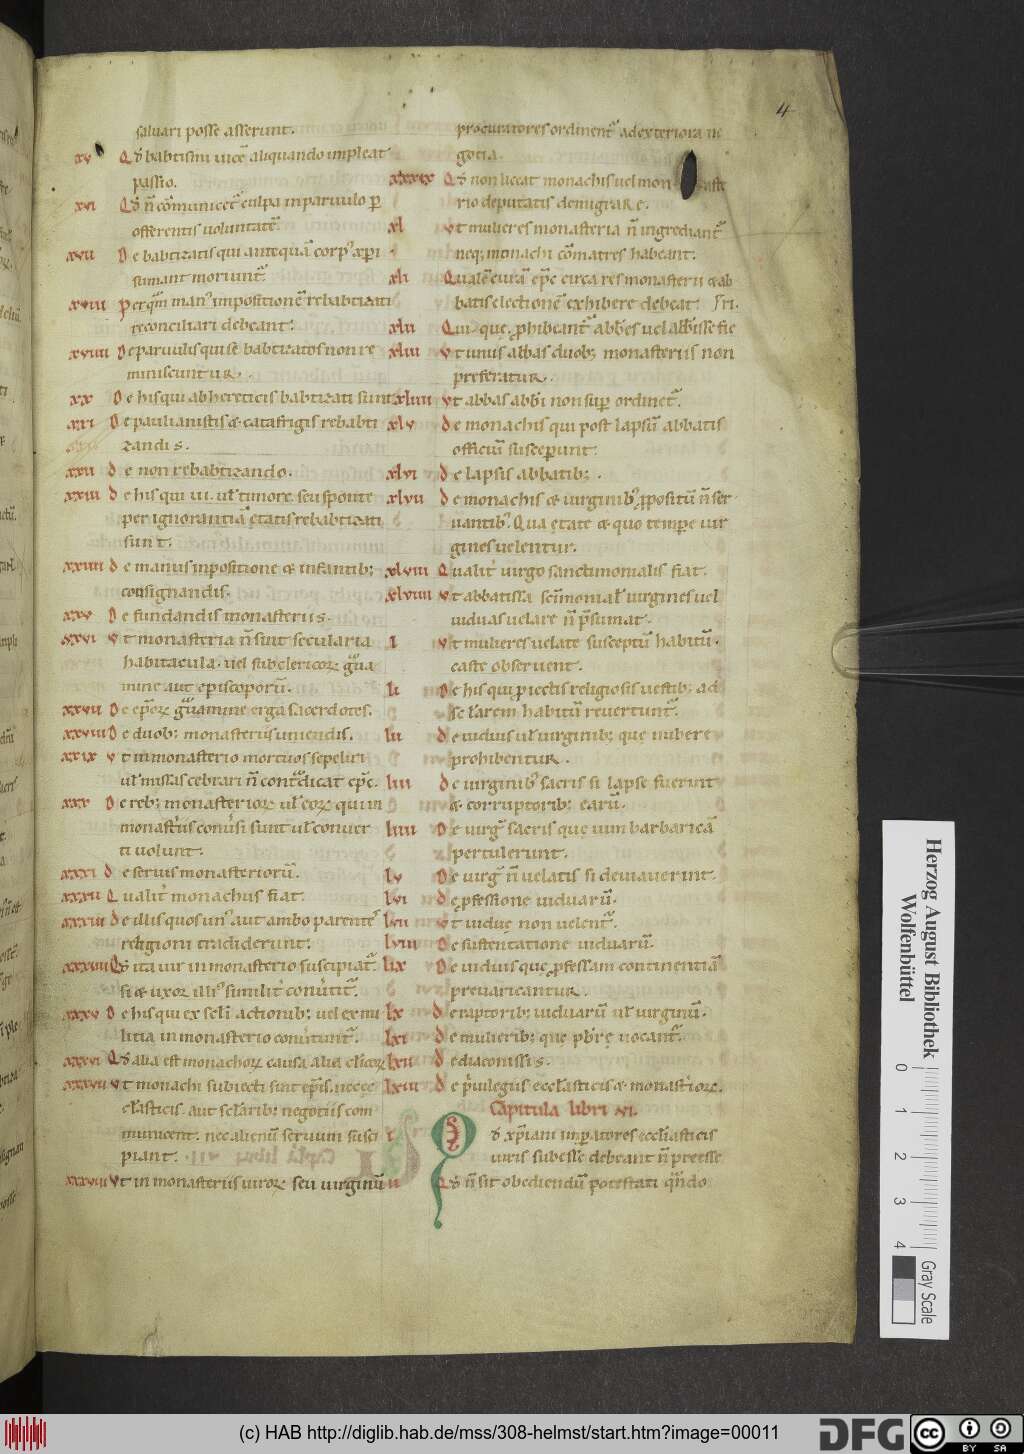 4
saluari posse asserunt.
xv Qd̄ babtismi uicē aliquando impleat
passio.
xvi Qd̄ n̄ cōmunicet᷑ culpa in paruulo ꝑ
offerentis uoluntatē.
xvii De babtizatis qui antequā corpꝰ xp̄i
sumant moriunt᷑.
xviii Per quā manꝰ impositionē rebabtizati
reconciliari debeant.
xviiii De paruulis qui se babtizatos non re
miniscuntur.
xx De his qui ab hereticis babtizati sunt
xxi De paulianistis & catafrigis rebabti
zandis.
xxii De non rebabtizando.
xxiii De his qui ui. ul̄ timore seu sponte
per ignorantiā etatis rebabtizati
sunt.
xxiiii De manus inpositione & infantib;
consignandis.
xxv De fundandis monasteriis.
xxvi Vt monasteria n̄ sint secularia
habitacula. uel sub clericoꝝ
mine aut episcoporū.
xxvii De ep̄oꝝ erga sacerdotes.
xxviii De duob; monasteriis uniendis.
xxix Vt in monasterio mortuos sepeliri
ul̄ missas cebrari n̄ ep̄c.
xxx De reb; monasterioꝝ ul̄ eoꝝ qui in
monast̄iis conu̅si sunt ul̄ conuer
ti uolunt.
xxxi De seruis monasteriorū.
xxxii Qualit̄ monachus fiat.
xxxiii De illis quos unꝰ aut ambo parentes
religioni tradiderunt.
xxxiiii Qd̄ ita uir in monasterio suscipiat᷑.
si & uxor illiꝰ similit̄ conu̅tit᷑.
xxxv De his qui ex sc̄li actionib; uel ex mi
litia in monasterio conu̅tunt᷑.
xxxvi Qd̄ alia est monachoꝝ causa. alia cl̄icoꝝ
xxxvii Vt monachi subiecti sint ep̄is. nec ęc
cl̄asticis. aut sc̄larib; negotiis com
municent. nec alienū seruum susci
piant.
xxxviii Vt in monasteriis uiroꝝ seu uirginū
procuratores ordinent᷑ ad exteriora ne
gotia.
xxxix Qd̄ non liceat monachis uel mon aste
rio deputatis demigrare.
xl Vt mulieres monasteria n̄ ingrediant᷑
neq; monachi cōmatres habeant.
xli Qualē curā ep̄c circa res monasterii & ab
batis electionē exhibere debeat.
xlii Qui que ꝓhibeant᷑ abb̄es uel abb̄isse fie
ri.
xliii Vt unus abbas duob; monasteriis non
preferatur.
xliiii Vt abbas abb̄i non sup̱ ordinet᷑.
xlv De monachis qui post lapsū abbatis
officiū susceperunt.
xlvi De lapsis abbatib;.
xlvii De monachis & uirginibꝰ ꝓpositū n̄ ser
uantibꝰ. Qua etate & quo tempe uir
gines uelentur.
xlviii Qualit̄ uirgo sanctimonialis fiat.
xlviiii Vt abbatissa sc̄imonial̄ uirgines uel
uiduas uelare n̄ p̄sumat.
l Vt mulieres uelate susceptū habitū
caste obseruent.
li De his qui ꝓiectis religiosis uestib; ad
sc̄larem habitū reuertunt᷑.
lii De uiduis ul̄ uirginib; que nubere
prohibentur.
liii De uirginibꝰ sacris si lapse fuerint
& corruptorib; earū.
liiii De uirg̅ sacris que uim barbaricā
pertulerunt.
lv De uirg̅ n̄ uelatis si deuiauerint.
lvi De ꝓfessione uiduarū.
lvii Vt uidue non uelent᷑.
lviii De sustentatione uiduarū.
lix De uiduis que ꝓfessam continentiā
preuaricantur.
lx De raptorib; uiduarū ul̄ uirginū.
lxi De mulierib; que pb̄rę uocant᷑.
lxii De diaconissis.
lxiii De p̄uilegiis ęccl̄asticis & monast̄ioꝝ.
Capitula libri xi.
i Qd̄ xp̄iani imp̱atores eccl̄iasticis
uiris subesse debeant n̄ preesse
ii Qd̄ n̄ sit obediendū potestati qn̄do
Herzog August Bibliothek
Wolfenbüttel
0 1 2 3 4
Gray Scale
(c) HAB http://diglib.hab.de/mss/308-helmst/start.htm?image=00011
DFG
cc BY SA